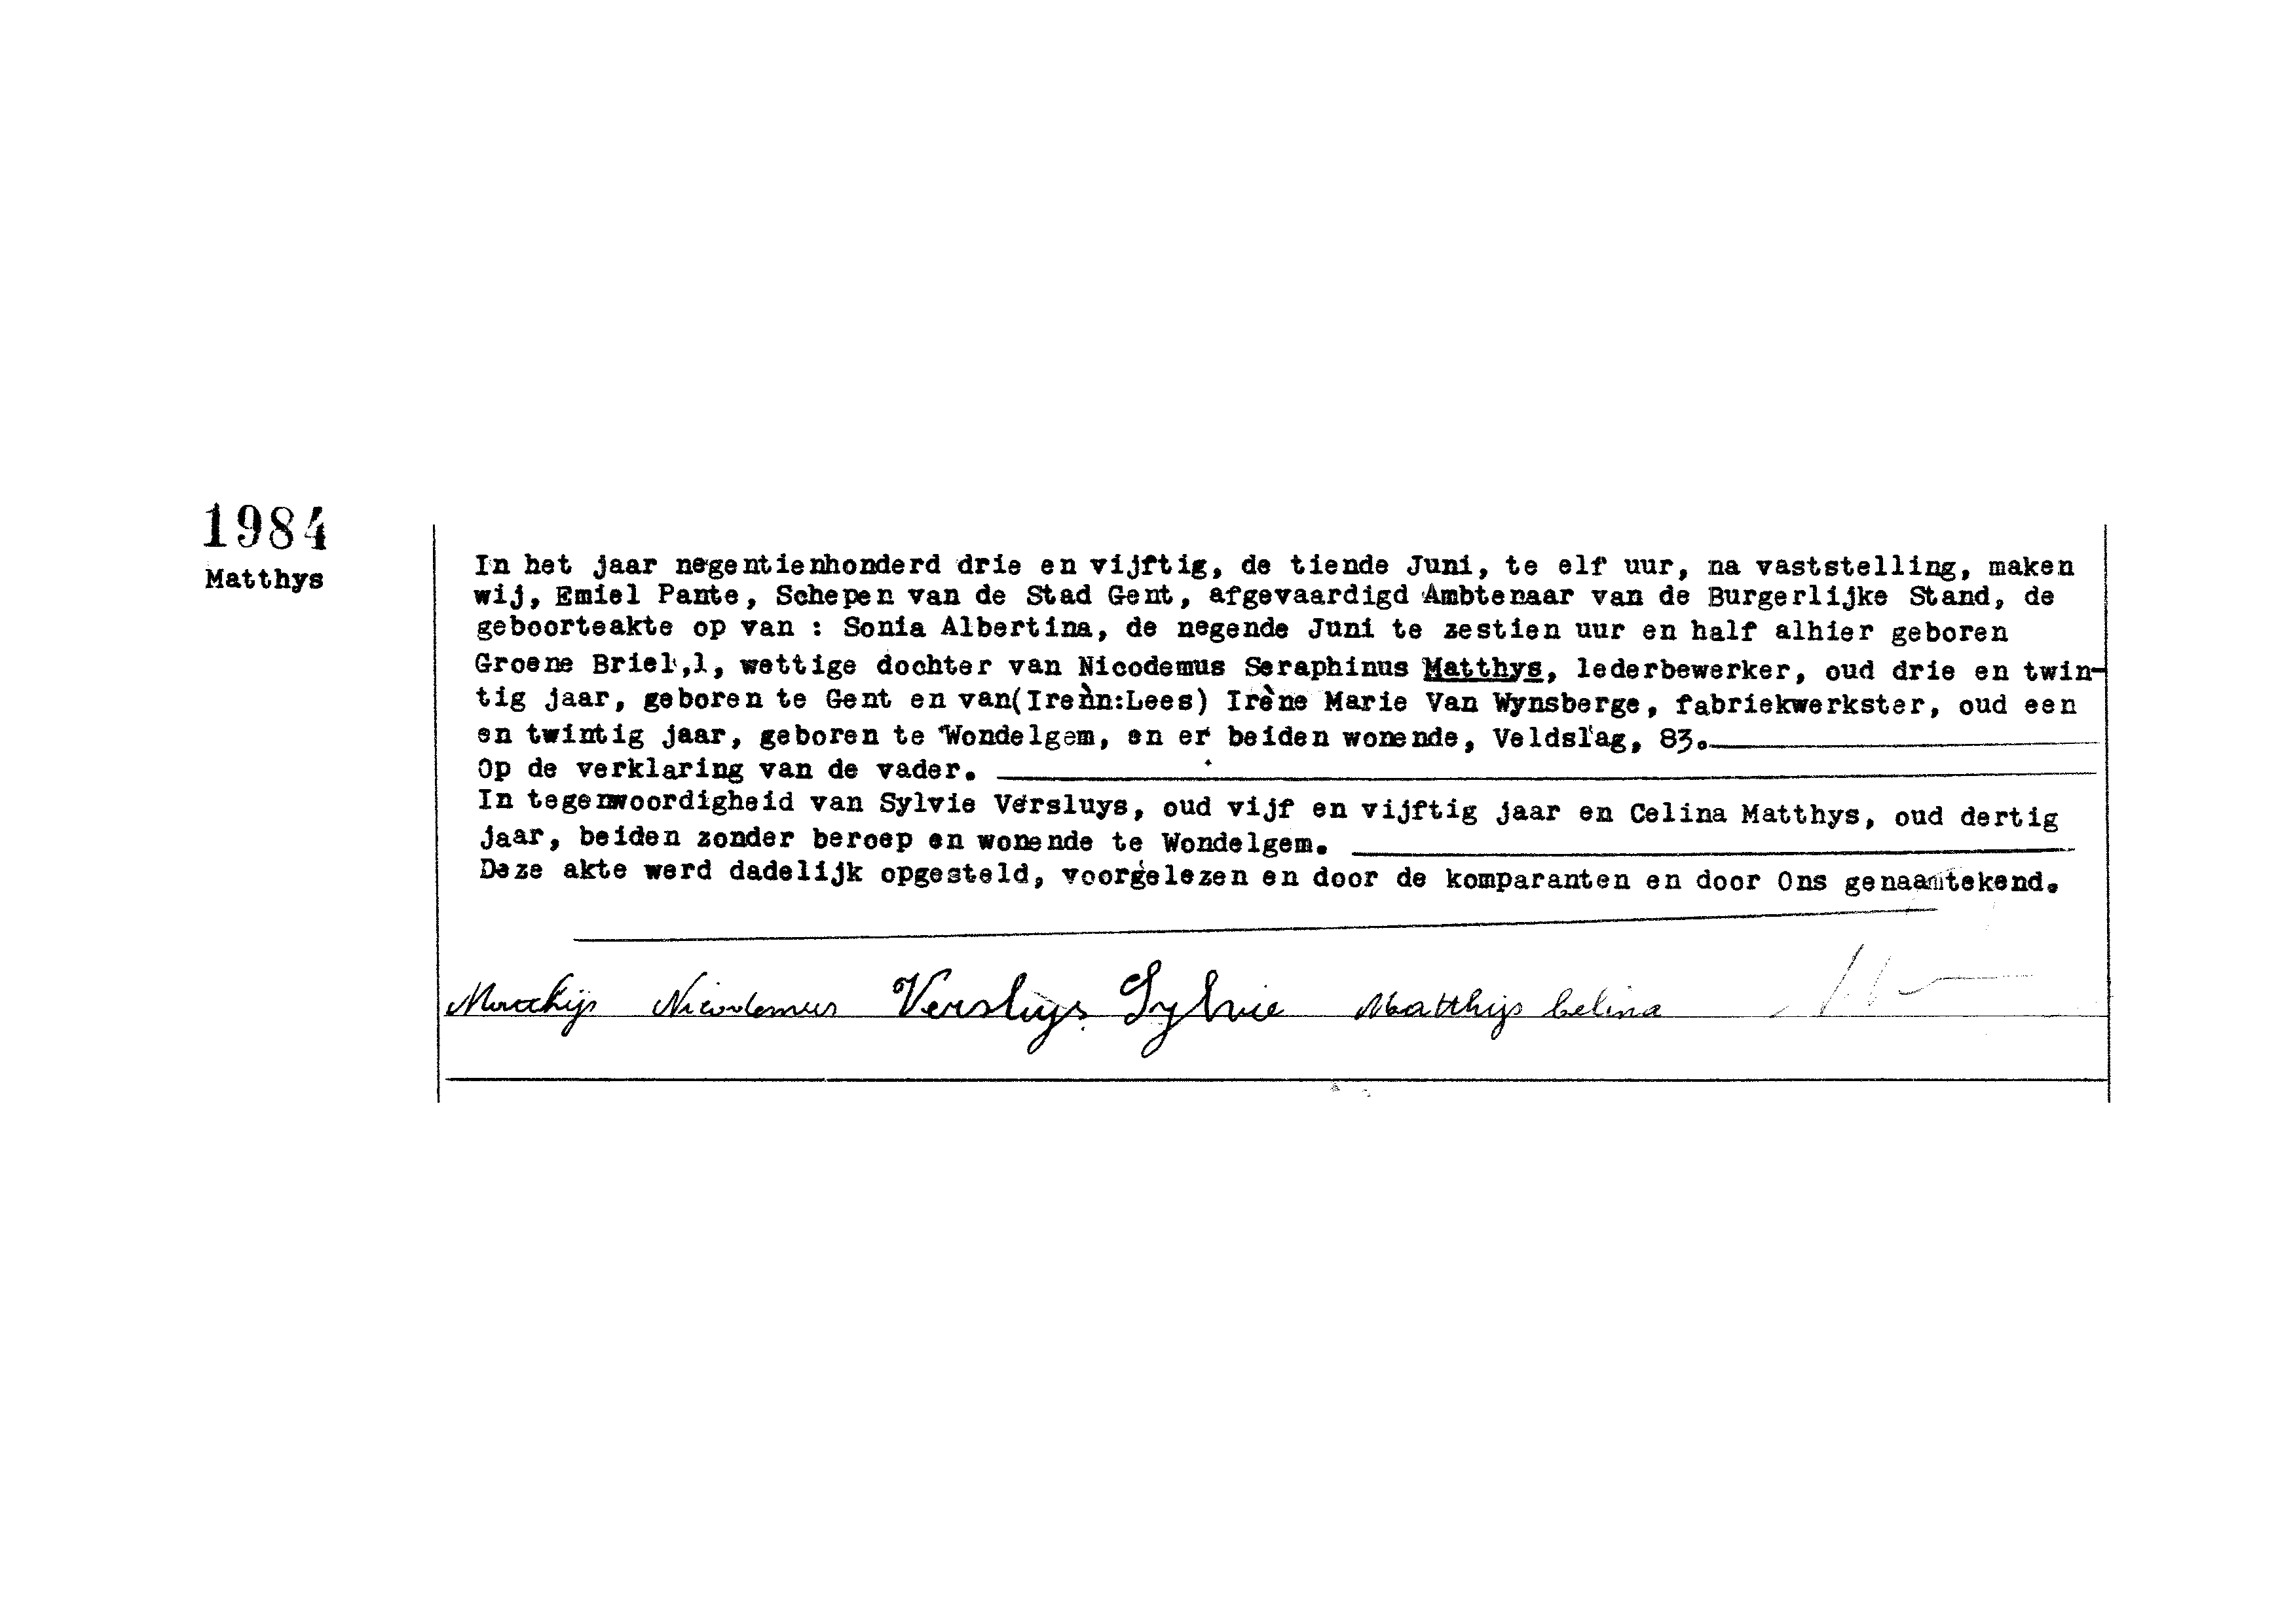 1984
Matthys
In het jaar negentienhonderd drie en vijftig, de tiende Juni, te elf uur, na vaststelling, maken
wij, Emiel Pante, Schepen van de Stad Gent, afgevaardigd Ambtenaar van de Burgerlijke Stand, de
geboorteakte op van : Sonia Albertina, de negende Juni te zestien uur en half alhier geboren
Groene Briel,1, wettige dochter van Nicodemus Seraphinus Matthys, lederbewerker, oud drie en twin-
tig jaar, geboren te Gent en van(Ireèn:Lees) Irène Marie Van Wynsberge, fabriekwerkster, oud een
en twintig jaar, geboren te Wondelgem, en er beiden wonende, Veldslag, 83.
Op de verklaring van de vader.
In tegenwoordigheid van Sylvie Versluys, oud vijf en vijftig jaar en Celina Matthys, oud dertig
jaar, beiden zonder beroep en wonende te Wondelgem.
Deze akte werd dadelijk opgesteld, voorgelezen en door de komparanten en door Ons genaamtekend.
Matthijs Nicodemus Versluys Sylvie Matthijs Celina